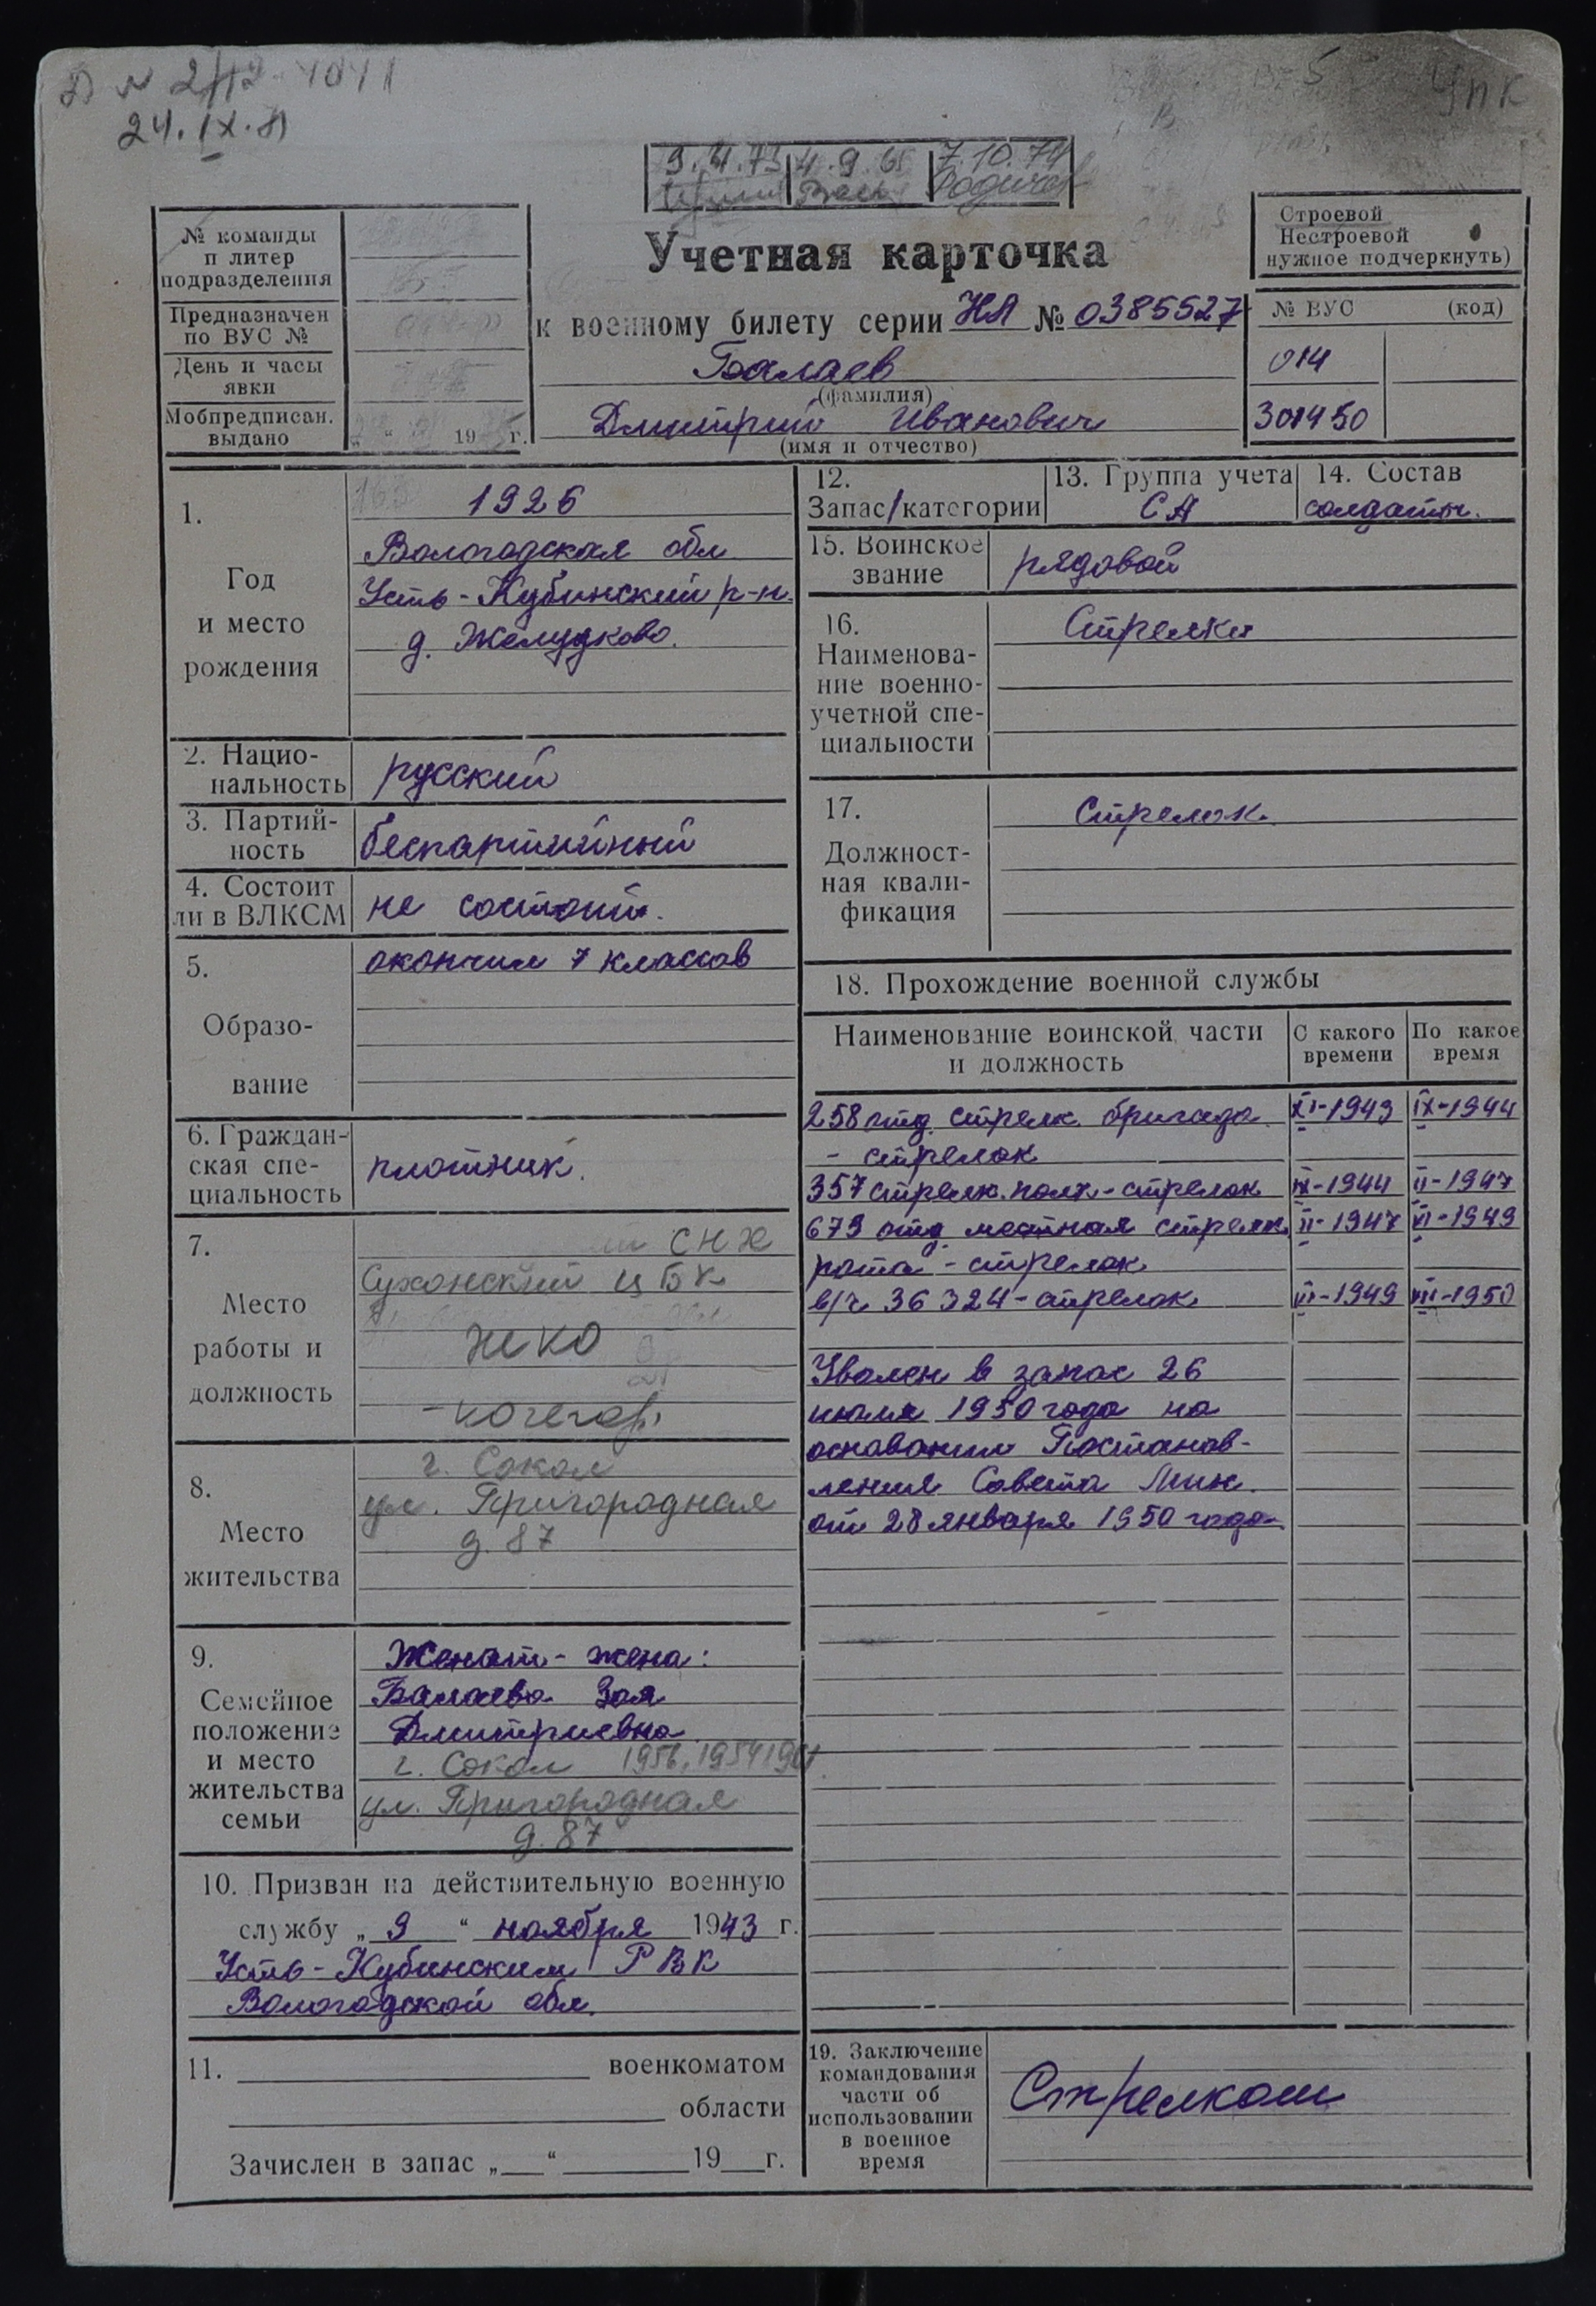 24. IX. 81
УПК
9.
4.9.
7.10.74
№ команды
п литер
подразделения
Предназначен
по ВУС №
День и часы
явки
Мобпредписан.
выдано
„ “ 19 г.
Учетная карточка
к военному билету серии НЛ № 0385527
Балаев
(фамилия)
Дмитрий Иванович
(имя и отчество)
Строевой
Нестроевой
нужное подчеркнуть)
№ ВУС (код)
014
301450
1.
Год
и место
рождения
1926
Вологодская обл
Усть-Кубинский р-н.
д. Желудково.
2. Нацио-
нальность
русский
3. Партий-
ность
беспартийный
4. Состоит
ли в ВЛКСМ
не состоит.
5.
Образо-
вание
окончил 7 классов
6. Граждан-
ская спе-
циальность
плотник.
7.
Место
работы и
должность
СНХ
Сухонский ЦБК
ЖКО
- кочегар
8.
Место
жительства
г. Сокол
ул. Пригородная
д. 87
9.
Семейное
положение
и место
жительства
семьи
Женат - жена:
Балаева Зоя
Дмитриевна
г. Сокол 1956, 1954
ул. Пригородная
д. 87
10. Призван на действительную военную
службу „ 9 “ ноября 1943 г.
Усть-Кубинским РВК
Вологодской обл.
11. военкоматом
области
Зачислен в запас „ “ 19 г.
12.
Запас/категории
13. Группа учета
СА
14. Состав
солдаты.
15. Воинское
звание
рядовой
16.
Наименова-
ние военно-
учетной спе-
циальности
Стрелки
17.
Должност-
ная квали-
фикация
Стрелок.
18. Прохождение военной службы
Наименование воинской части
и должность
С какого
времени
По какое
время
258 отд. стрелк. бригада XI-1943 IX-1944
- стрелок
357 стрелк. полк - стрелок IX-1944 II-1947
679 отд местная стрелк. II-1947 VI-1949
рота - стрелок
в/ч 36324 - стрелок VI-1949 VII-1950
Уволен в запас 26
июля 1950 года на
основании Постанов-
ления Совета Мин.
от 28 января 1950 года
19. Заключение
командования
части об
использовании
в военное
время
Стрелком